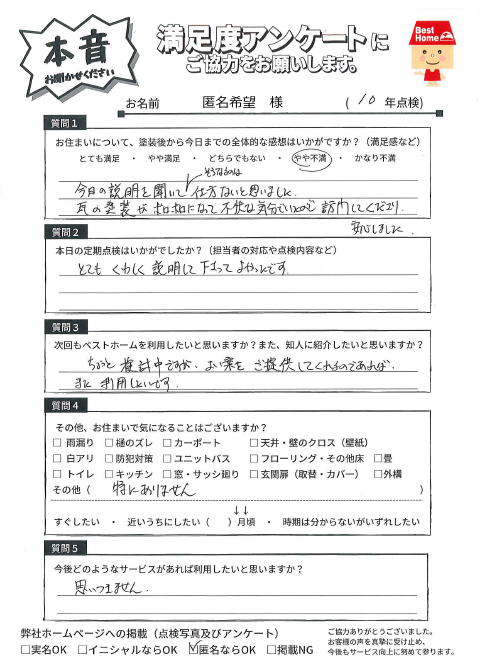 本音
お聞かせください
満足度アンケートに
ご協力をお願いします。
Best Home
お名前 匿名希望 様 ( 10 年点検)
質問1
お住まいについて、塗装後から今日までの全体的な感想はいかがですか？（満足感など）
とても満足 ・ やや満足 ・ どちらでもない ・ やや不満 ・ かなり不満
そうなるのは
今日の説明を聞いて 仕方ないと思いました
瓦の塗装がボロボロになって不快な気分でいたので訪問してくださり.
安心しました.
質問2
本日の定期点検はいかがでしたか？（担当者の対応や点検内容など）
とてもくわしく説明して下さってよかったです.
質問3
次回もベストホームを利用したいと思いますか？また、知人に紹介したいと思いますか？
ちょっと検討中ですが、よい案をご提供してくれるのであれば.
また利用したいです.
質問4
その他、お住まいで気になることはございますか？
□ 雨漏り □ 樋のズレ □ カーポート □ 天井・壁のクロス（壁紙）
□ 白アリ □ 防犯対策 □ ユニットバス □ フローリング・その他床 □畳
□ トイレ □ キッチン □ 窓・サッシ廻り □ 玄関扉（取替・カバー） □外構
その他（ 特にありません ）
↓↓
すぐしたい ・ 近いうちにしたい（ ）月頃 ・ 時期は分からないがいずれしたい
質問5
今後どのようなサービスがあれば利用したいと思いますか？
思いつきません.
弊社ホームページへの掲載（点検写真及びアンケート）
□実名OK □イニシャルならOK ☑匿名ならOK □掲載NG
ご協力ありがとうございました。
お客様の声を真摯に受け止め、
今後もサービス向上に努めて参ります。